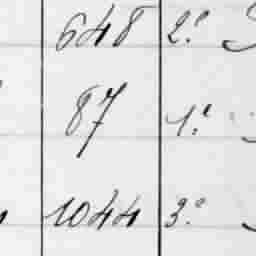 648 2.º
87 1.º
1044 3.º